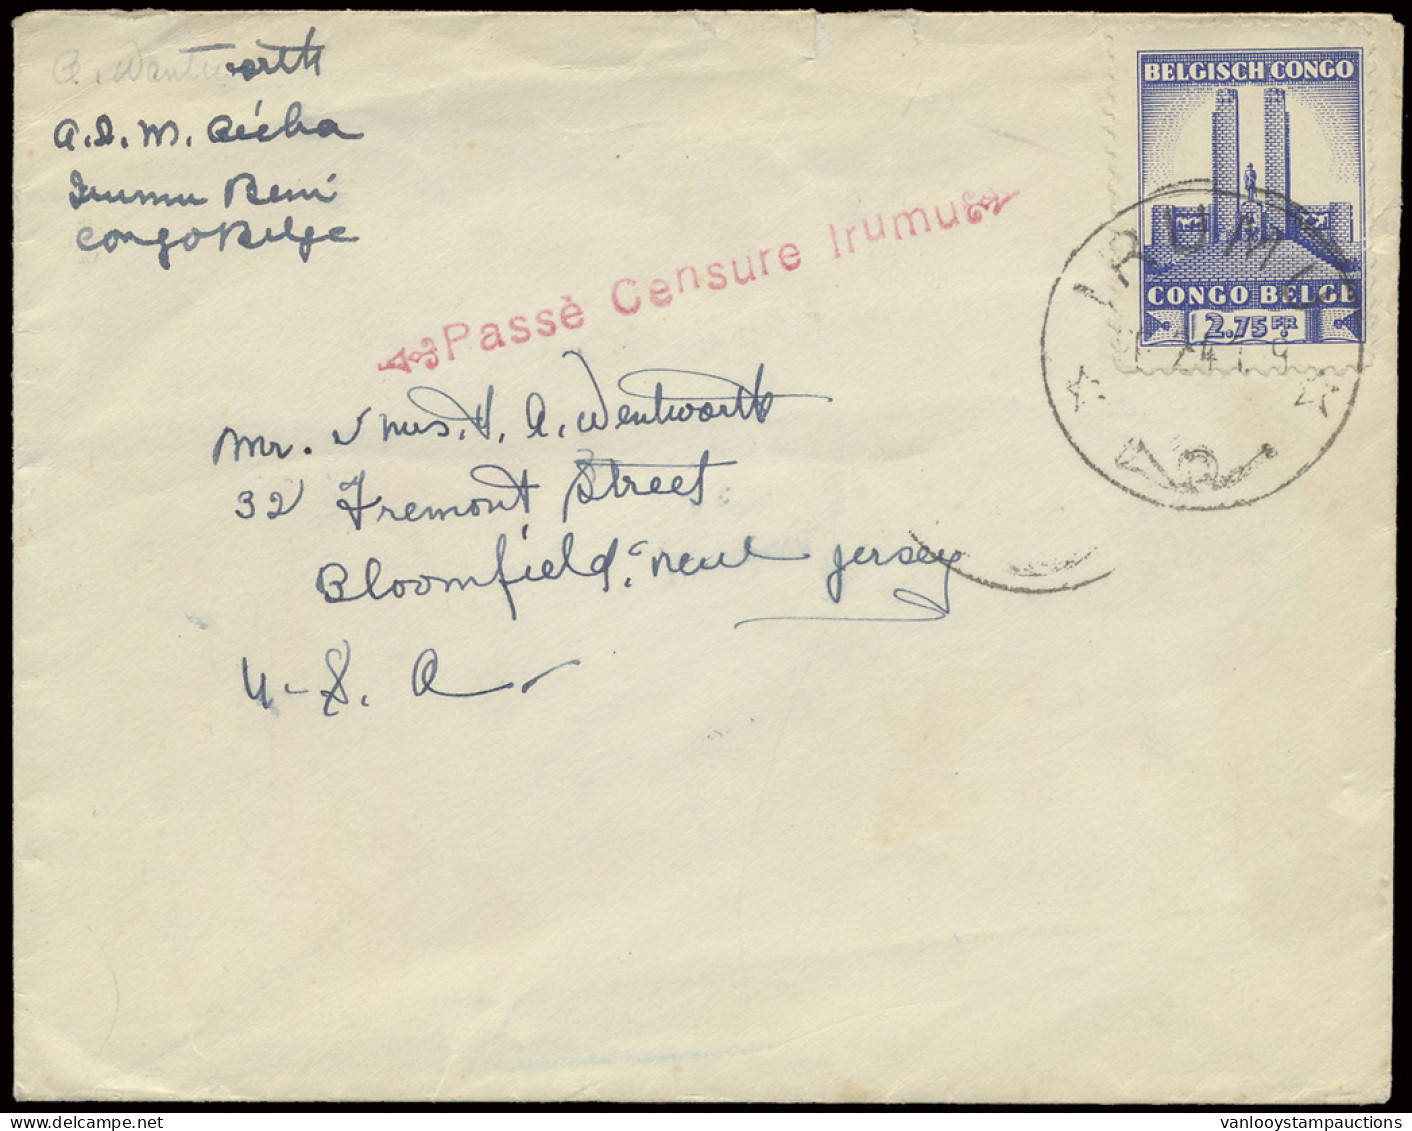 Wentworth
Irumu Beni
Congo Belge
Passè Censure Irumu
BELGISCH CONGO
CONGO BELGE
2.75 FR
IRUMU
Mr. & Mrs. H. A. Wentworth
32 Fremont Street
Bloomfield, New Jersey
U-S. A.
vanlooystampauctions